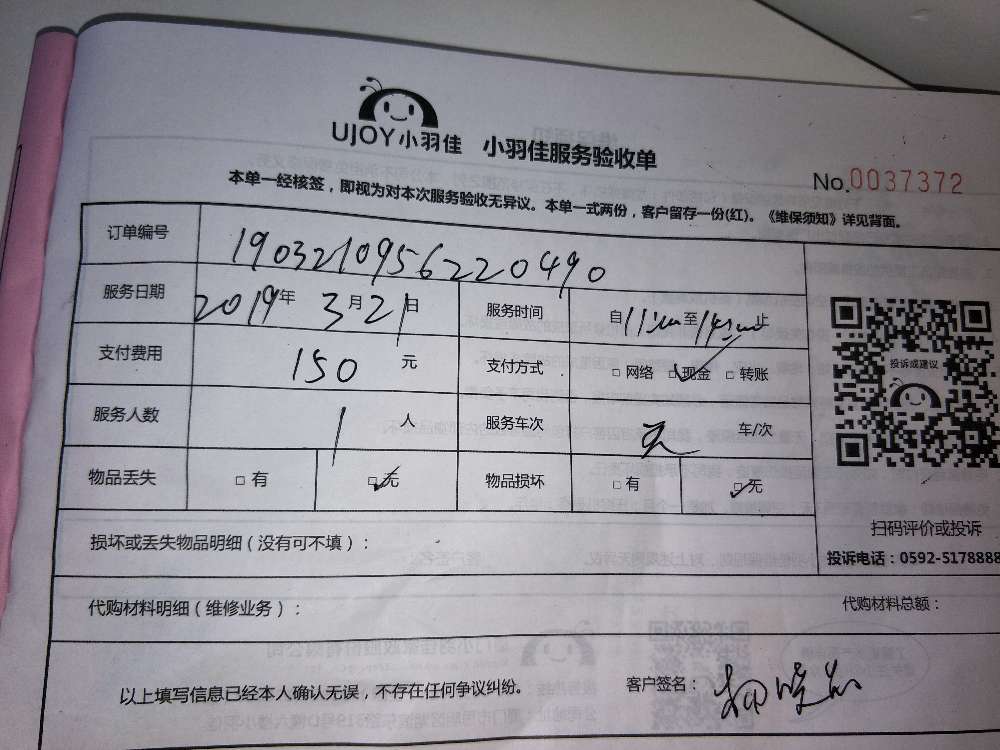 UJOY小羽佳 小羽佳服务验收单
No.0037372
本单一经核签，即视为对本次服务验收无异议。本单一式两份，客户留存一份(红)。《维保须知》详见背面。
订单编号 1903210956220490
服务日期 2019年3月21日 服务时间 自11:00至14:00止
支付费用 150元 支付方式 □网络 □现金 □转账
投诉或建议
服务人数 1人 服务车次 无 车/次
物品丢失 □有 □无 物品损坏 □有 □无
扫码评价或投诉
损坏或丢失物品明细（没有可不填）：
投诉电话：0592-5178888
代购材料明细（维修业务）： 代购材料总额：
以上填写信息已经本人确认无误，不存在任何争议纠纷。 客户签名：